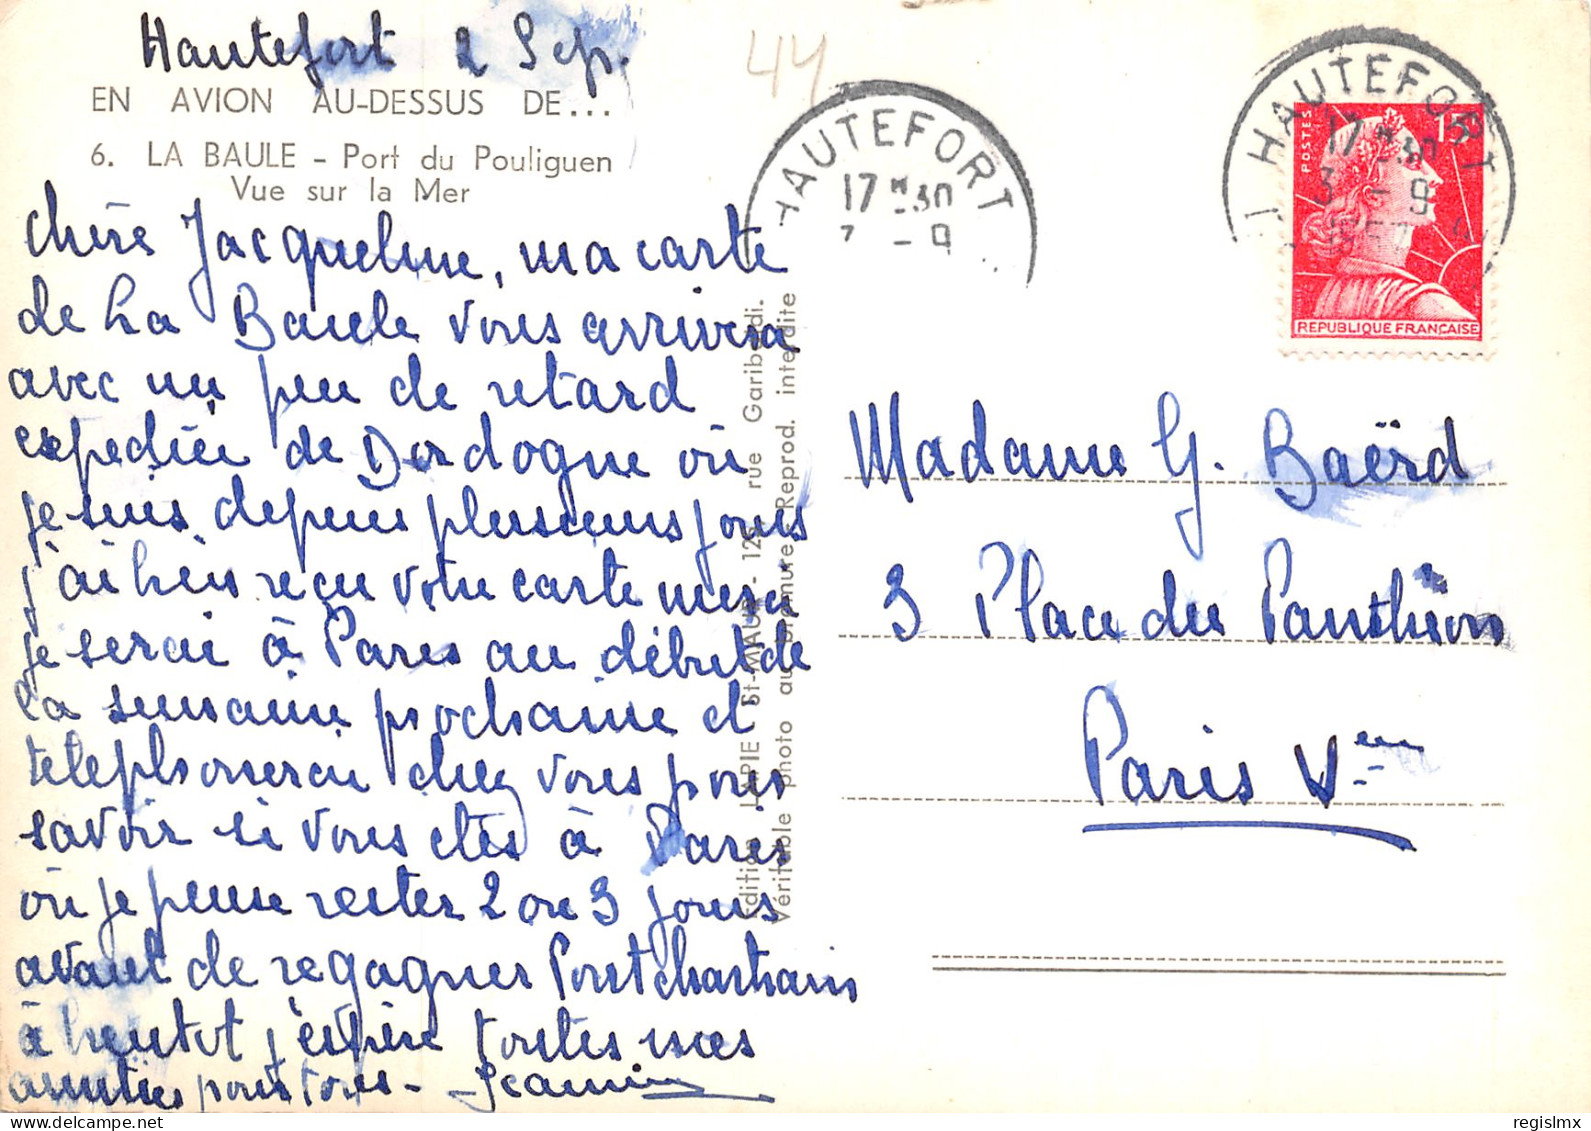 Hautefort 2 Sep.
EN AVION AU-DESSUS DE...
6. LA BAULE – Port du Pouliguen
Vue sur la Mer
chère Jacqueline, ma carte
de La Baule vous arrivera
avec un peu de retard
expediée de Dordogne où
je suis depuis plusieurs jours
j'ai bien reçu votre carte merci
je serai à Paris au début de
la semaine prochaine et
telephonerai chez vous pour
savoir si vous etes à Paris
où je pense rester 2 ou 3 jours
avant de regagner Pontchartrain
à bientot j'espère toutes mes
amitiés pour tous -
44
HAUTEFORT
17 H 30
- 9
HAUTEFORT
17 H 30
3 - 9
POSTES
15F
REPUBLIQUE FRANÇAISE
Edition LAPIE St-MAUR - 125 rue Garibaldi.
Véritable photo au bromure Reprod. interdite
Madame G. Baërd
3 Place du Panthéon
Paris Vem